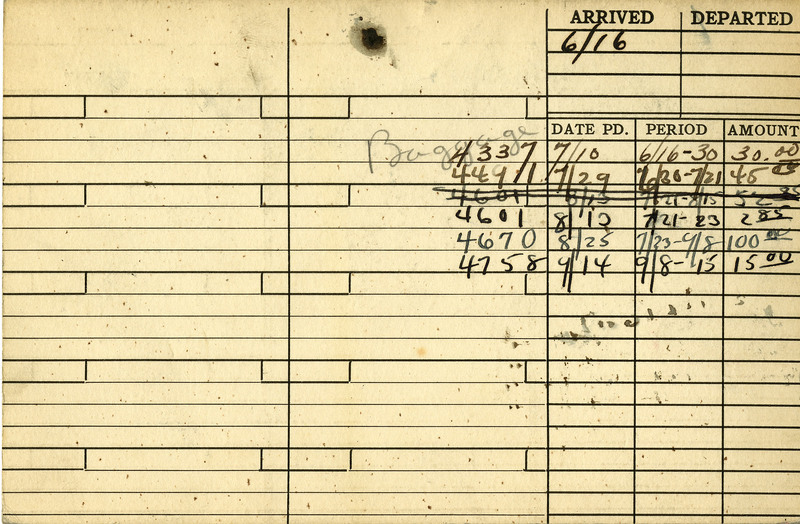 ARRIVED DEPARTED
6/16
DATE PD. PERIOD AMOUNT
Baggage
4337 7/10 6/16-30 30.00
4491 7/29 6/30-7/21 45
4601 8/13 7/21-8/15 52
4601 8/13 7/21-23 2 85
4670 8/25 7/23-9/8 100 00
4758 9/14 9/8-15 15 00